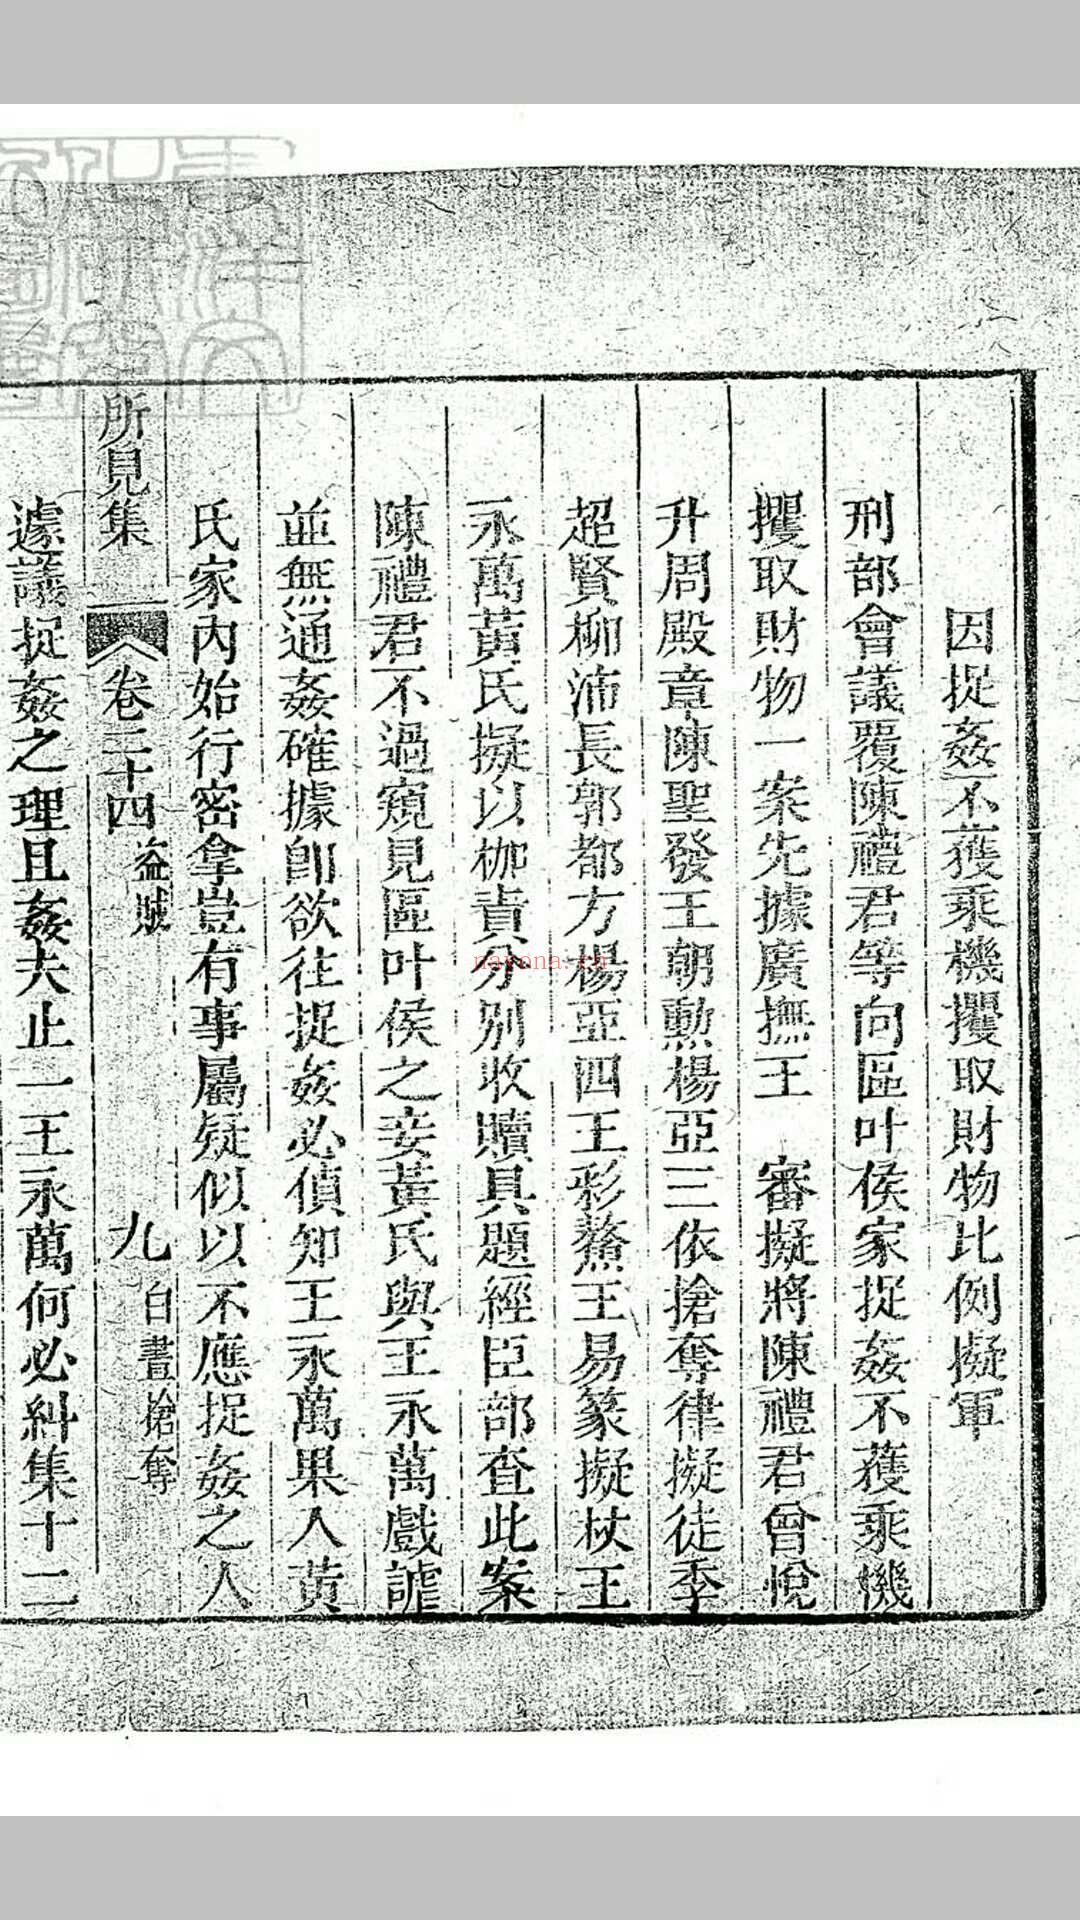 因捉姦不獲乘機攫取財物比例擬軍
刑部會議覆陳禮君等向區叶侯家捉姦不獲乘機
攫取財物一案先據廣撫王　審擬將陳禮君曾悅
升周殿章陳聖發王朝勲楊亞三依搶奪律擬徒季
超賢柳沛長郭都方楊亞四王彩鰲王易篆擬杖王
永萬黃氏擬以枷責分別收贖具題經臣部查此案
陳禮君不過窺見區叶侯之妾黃氏與王永萬戲謔
並無通姦確據卽欲往捉姦必偵知王永萬果入黃
氏家內始行密拿豈有事屬疑似以不應捉姦之人
所見集　卷三十四　盜賊　九　白晝搶奪
遽議捉姦之理且姦夫止一王永萬何必糾集十二
nayona.cn